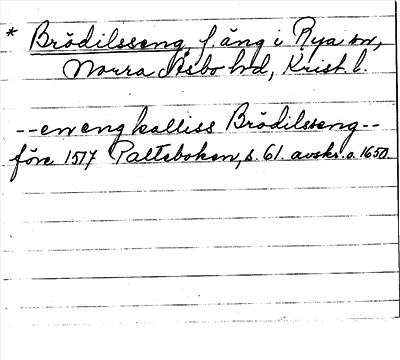 * Brödilsseng, f. äng i Rya sn,
Norra Åsbo hd, Krist. l.
--en eng kalliss Brödilsseng--
före 1517 Palteboken, s. 61. avskr. o. 1650.